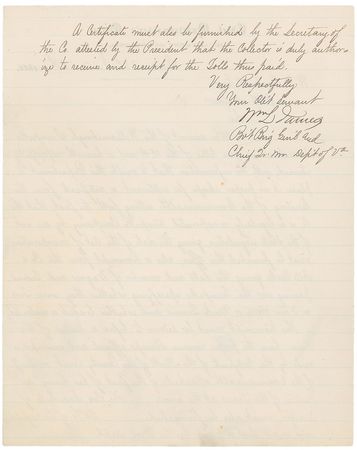 A Certificate must also be furnished by the Secretary of
the Co. attested by the President that the Collector is duly author-
ize to receive and receipt for the Tolls thus paid.
Very Respectfully
Your Obt Servant
Wm L James
Bvt Brig Genl and
Chief Qr. Mr. Dept of Va